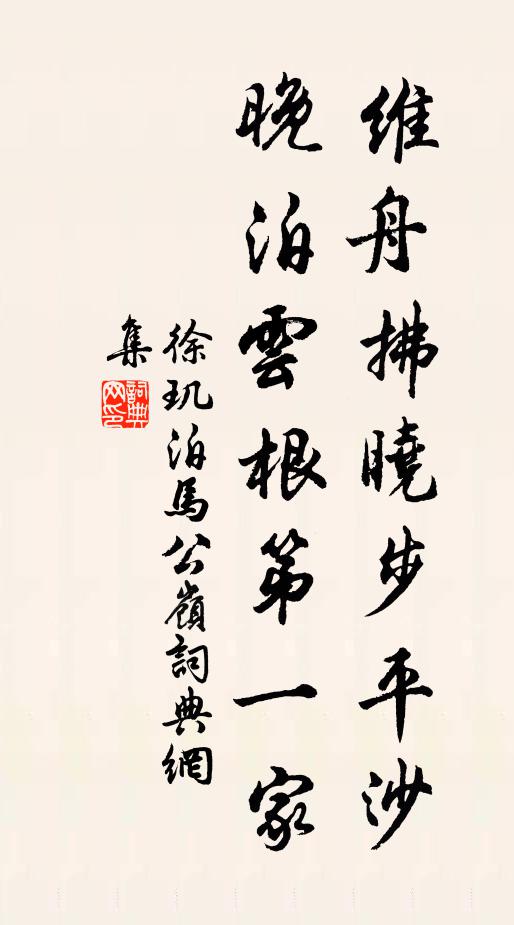 維舟拂曉步平沙
晚泊雲根第一家
徐玑泊馬公嶺詞典網
集
詞典網印